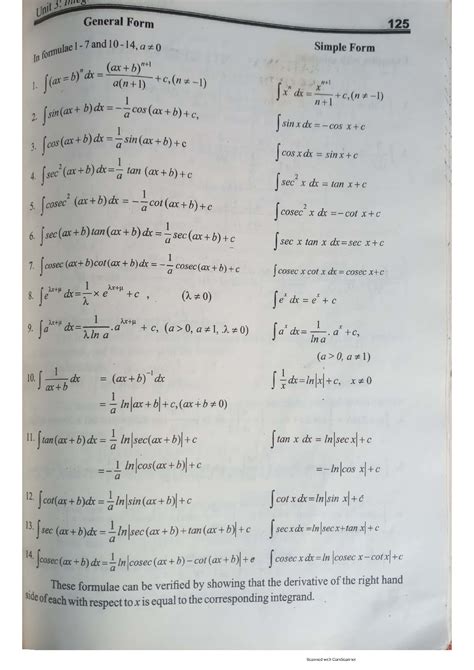 Unit 3: Integ
General Form
125
In formulae 1 - 7 and 10 - 14, a ≠ 0
Simple Form
1. ∫(ax = b)ⁿ dx = (ax + b)ⁿ⁺¹ / a(n + 1) + c, (n ≠ −1)
∫xⁿ dx = xⁿ⁺¹ / n + 1 + c, (n ≠ −1)
2. ∫sin(ax + b) dx = − 1/a cos (ax + b) + c,
∫sin x dx = − cos x + c
3. ∫cos (ax + b) dx = 1/a sin (ax + b) + c
∫cos x dx = sin x + c
4. ∫sec² (ax + b) dx = 1/a tan (ax + b) + c
∫sec² x dx = tan x + c
5. ∫cosec² (ax + b) dx = − 1/a cot (ax + b) + c
∫cosec² x dx = − cot x + c
6. ∫sec (ax + b) tan (ax + b) dx = 1/a sec (ax + b) + c
∫sec x tan x dx = sec x + c
7. ∫cosec (ax + b) cot (ax + b) dx = − 1/a cosec (ax + b) + c
∫cosec x cot x dx = − cosec x + c
8. ∫e^(λx+μ) dx = 1/λ × e^(λx+μ) + c , (λ ≠ 0)
∫eˣ dx = eˣ + c
9. ∫a^(λx+μ) dx = 1/(λ ln a) . a^(λx+μ) + c, (a > 0, a ≠ 1, λ ≠ 0)
∫aˣ dx = 1/(ln a) . aˣ + c,
(a > 0, a ≠ 1)
10. ∫ 1/(ax + b) dx = (ax + b)⁻¹ dx
∫ 1/x dx = ln|x| + c, x ≠ 0
= 1/a ln|ax + b| + c, (ax + b ≠ 0)
11. ∫tan (ax + b) dx = 1/a ln|sec(ax + b)| + c
∫tan x dx = ln|sec x| + c
= − 1/a ln|cos(ax + b)| + c
= − ln|cos x| + c
12. ∫cot(ax + b)dx = 1/a ln|sin (ax + b)| + c
∫cot x dx = ln|sin x| + c
13. ∫sec (ax + b)dx = 1/a ln|sec (ax + b) + tan (ax + b)| + c
∫sec x dx = ln|sec x + tan x| + c
14. ∫cosec (ax + b)dx = 1/a ln|cosec (ax + b) − cot (ax + b)| + e
∫cosec x dx = ln |cosec x − cot x| + c
These formulae can be verified by showing that the derivative of the right hand
side of each with respect to x is equal to the corresponding integrand.
Scanned with CamScanner